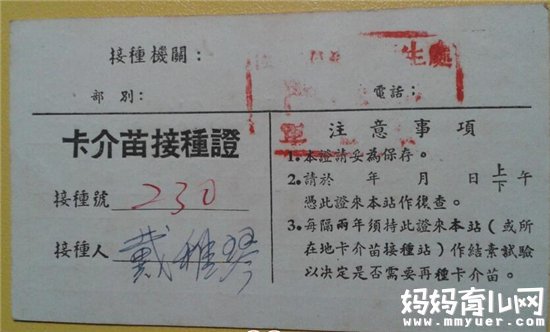 接種機關：
生處
部別：
電話：
卡介苗接種證
接種號 230
接種人 戴雅琴
注意事項
1. 本證請妥為保存。
2. 請於 年 月 日 上/下 午
憑此證來本站作復查。
3. 每隔兩年須持此證來本站（或所
在地卡介苗接種站）作結素試驗
以決定是否需要再種卡介苗。
妈妈育儿网
www.mmyuer.com